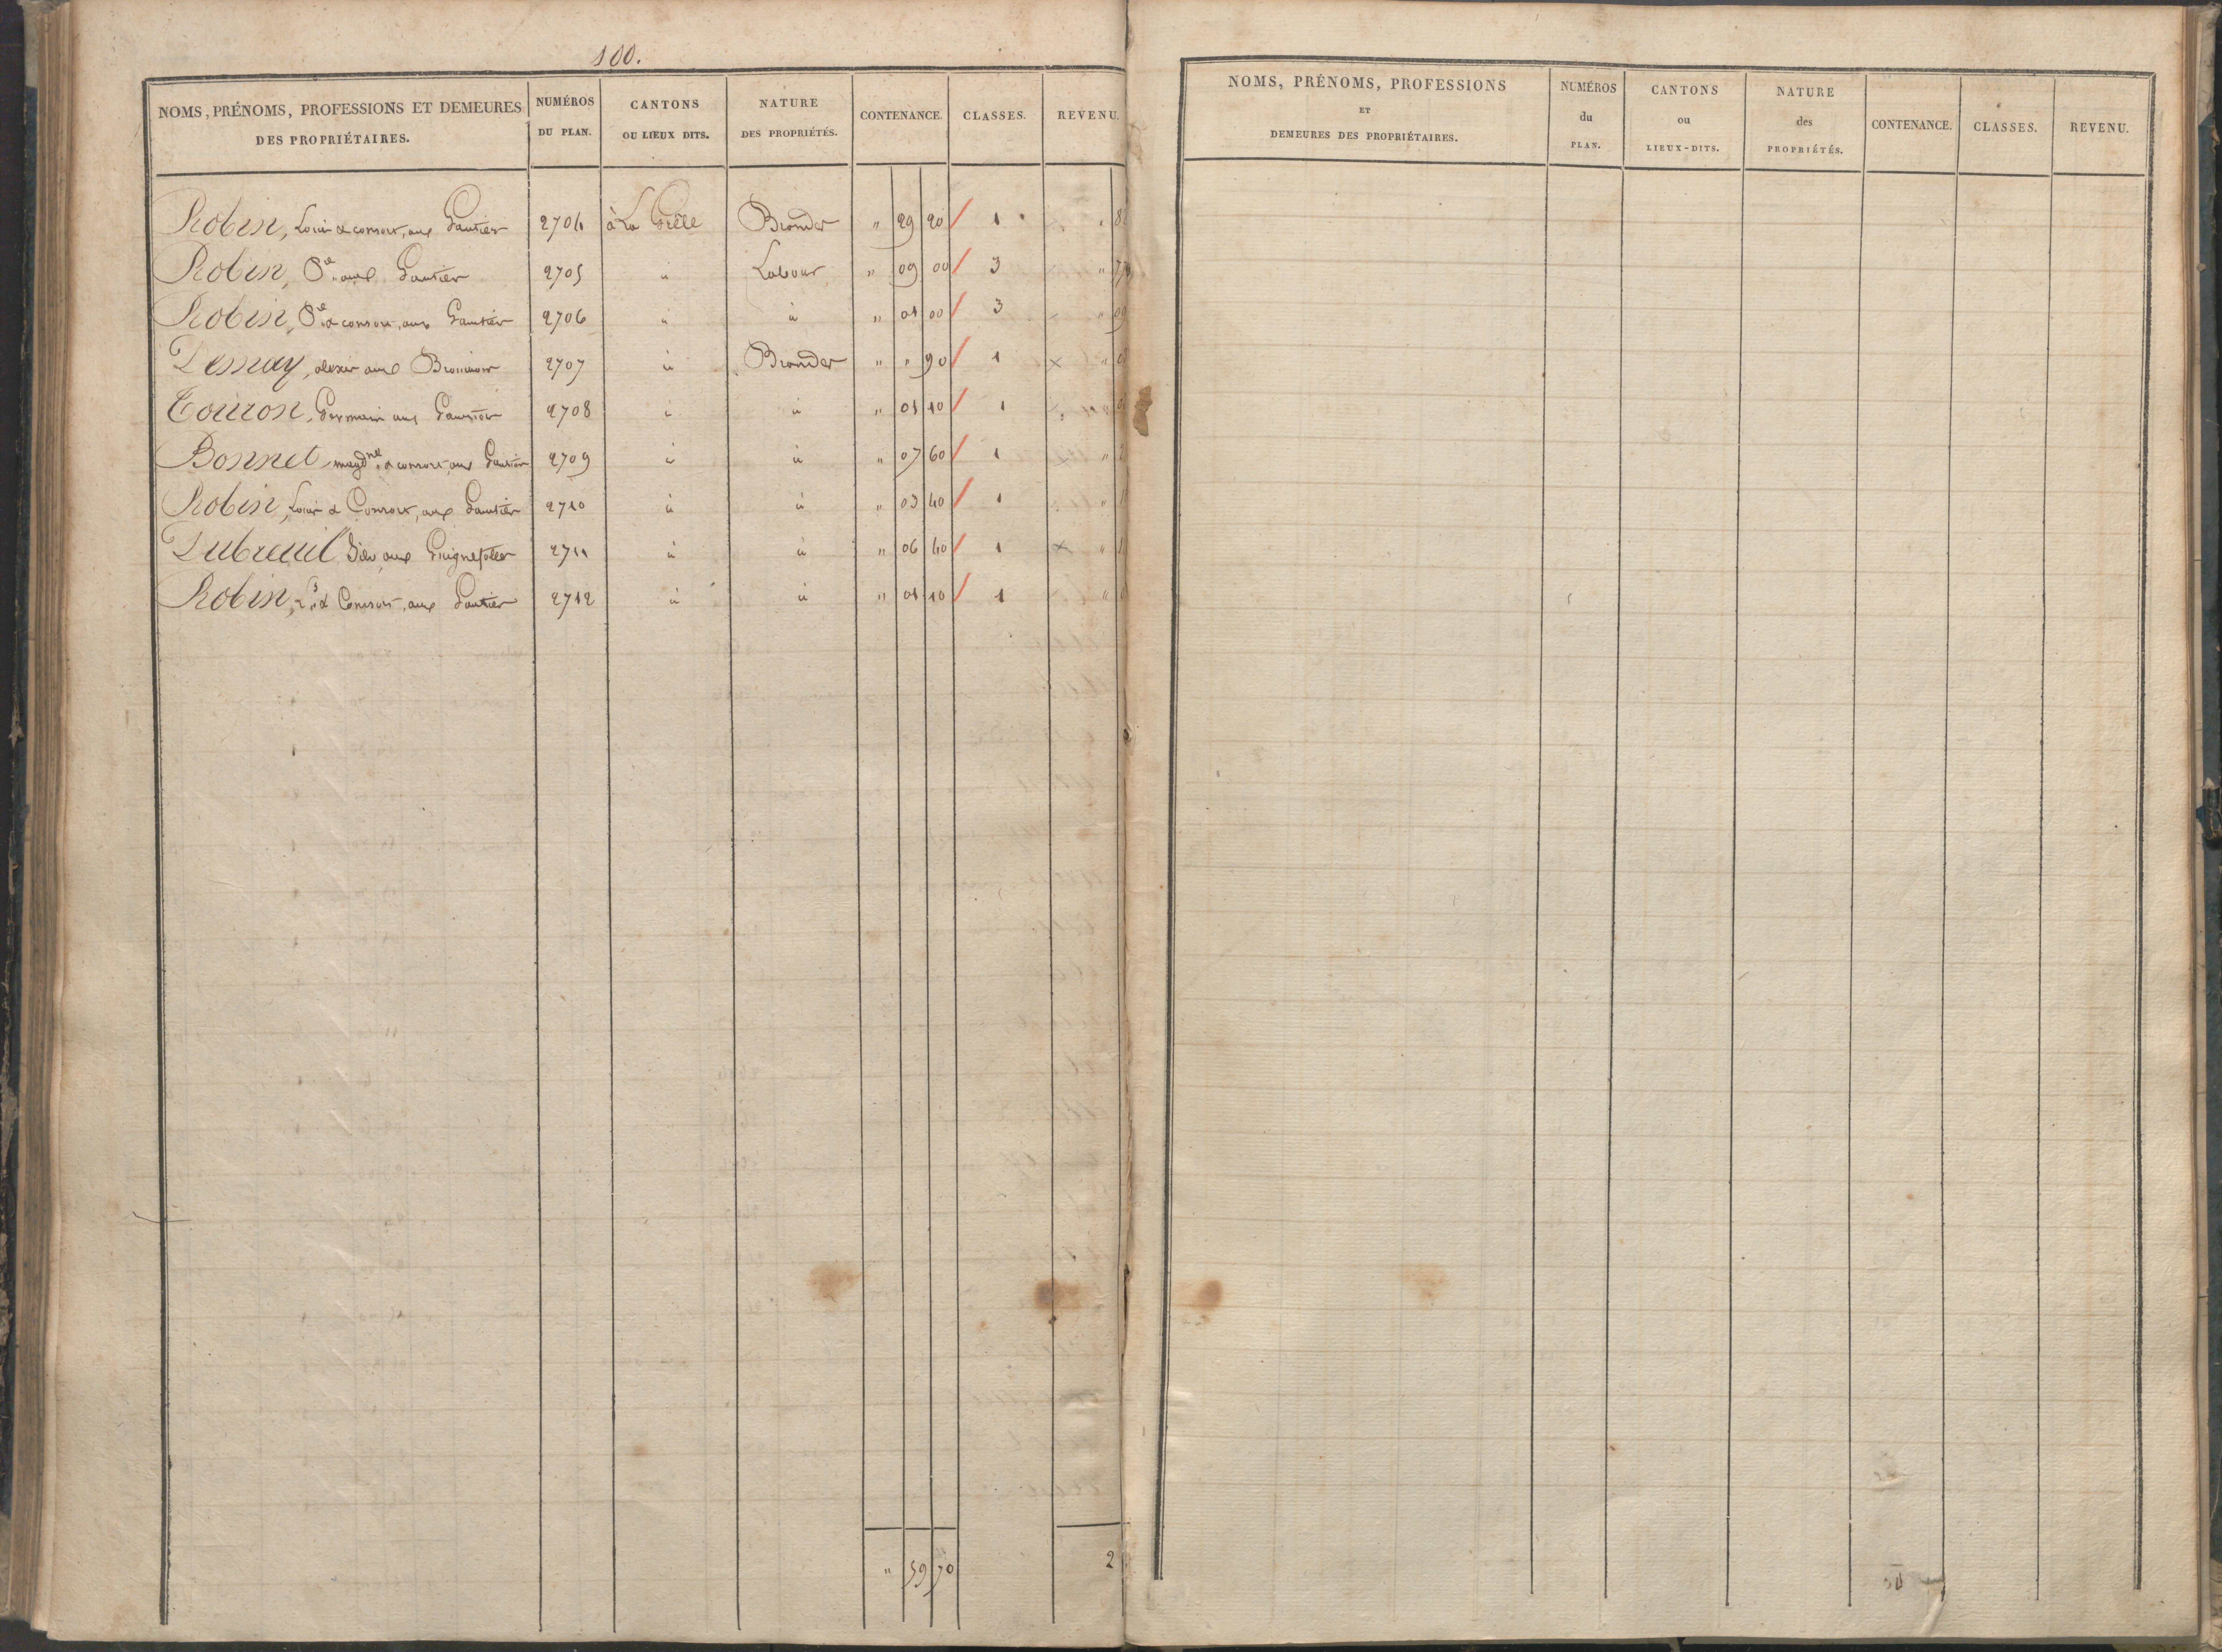 100.
NOMS, PRÉNOMS, PROFESSIONS ET DEMEURES DES PROPRIÉTAIRES. NUMÉROS DU PLAN. CANTONS OU LIEUX DITS. NATURE DES PROPRIÉTÉS. CONTENANCE. CLASSES. REVENU.
Robin, Louis & consort, aux Gautier 2704 à La Grêle Brandes " 29 20 1 "
Robin, Pre aux Gautier 2705 id Labour " 09 00 3 "
Robin, Pre & consort, aux Gautier 2706 id id " 01 00 3 "
Demay, alexis aux 2707 id Brandes " " 90 1 "
Touzon, Germain aux Gautier 2708 id id " 01 10 1
Bonnet, magdne & consort, aux Gautier 2709 id id " 07 60 1 "
Robin, Louis & Consort, aux Gautier 2710 id id " 03 40 1 "
Dubreuil aux 2711 id id " 06 40 1 "
Robin, Ls & Consort, aux Gautier 2712 id id " 01 10 1 "
" 59 70 2
NOMS, PRÉNOMS, PROFESSIONS ET DEMEURES DES PROPRIÉTAIRES. NUMÉROS du PLAN. CANTONS ou LIEUX-DITS. NATURE des PROPRIÉTÉS. CONTENANCE. CLASSES. REVENU.